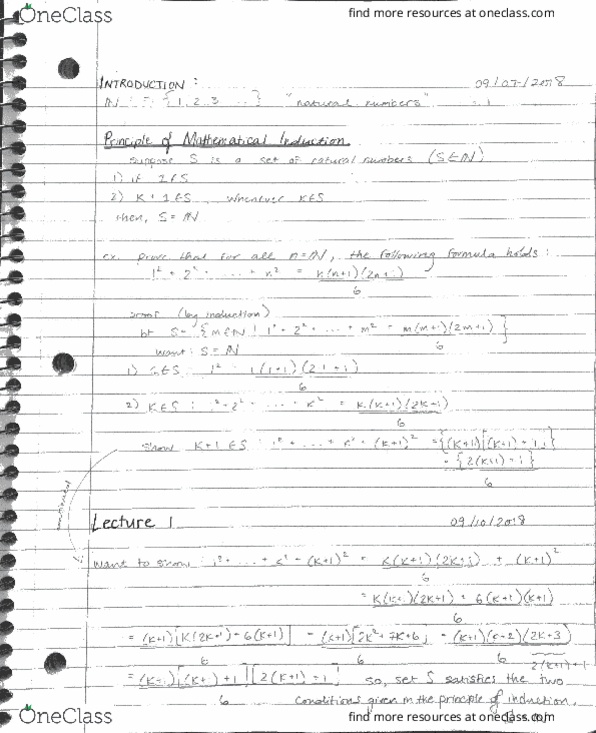 OneClass
find more resources at oneclass.com
INTRODUCTION : 09/07/2018
IN = {1, 2, 3 ...} "natural numbers"
Principle of Mathematical Induction.
Suppose S is a set of natural numbers (S ⊆ IN)
1) if 1 ∈ S
2) K + 1 ∈ S whenever K ∈ S
then, S = IN
ex. prove that for all n = IN, the following formula holds :
1² + 2² + ... + n² = n(n+1)(2n+1) / 6
proof (by induction)
let S = { m ∈ IN | 1² + 2² + ... + m² = m(m+1)(2m+1) / 6 }
want : S = IN
1) ∈ S : 1² = 1(1+1)(2·1+1) / 6
2) K ∈ S : 1² + 2² + ... + K² = K(K+1)(2K+1) / 6
show K+1 ∈ S : 1² + ... + K² + (K+1)² = {(K+1)[(K+1)+1]}
{2(K+1)+1} / 6
continued
Lecture 1 09/10/2018
want to show : 1² + ... + K² + (K+1)² = K(K+1)(2K+1) / 6 + (K+1)²
= K(K+1)(2K+1) + 6(K+1)(K+1) / 6
= (K+1)[K(2K+1) + 6(K+1)] / 6 = (K+1)[2K² + 7K + 6] / 6 = (K+1)(K+2)(2K+3) / 6
2(K+1)+1
= (K+1)[(K+1)+1][2(K+1)+1] / 6 so, set S satisfies the two
conditions given in the principle of induction.
OneClass
find more resources at oneclass.com